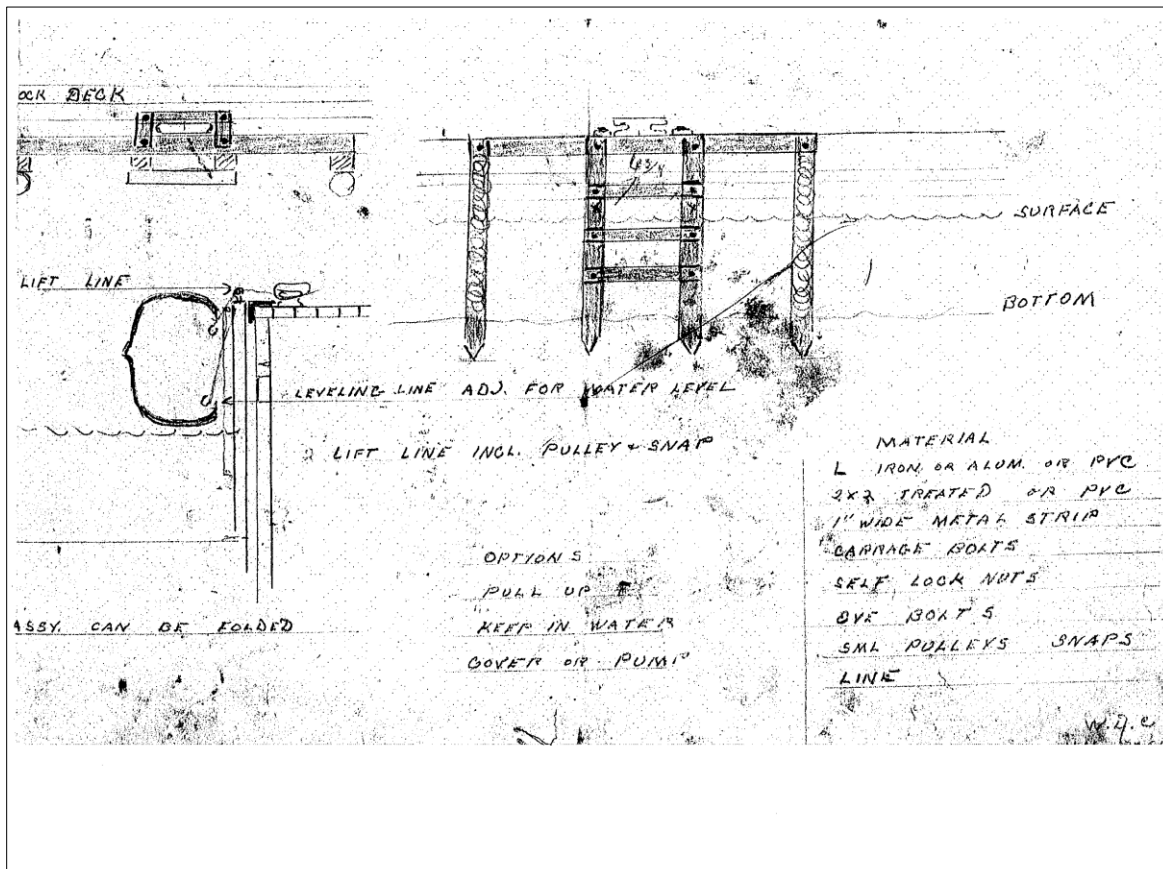 OCK DECK
6 3/4
SURFACE
LIFT LINE
BOTTOM
LEVELING LINE ADJ. FOR WATER LEVEL
2 LIFT LINE INCL. PULLEY & SNAP
ASSY. CAN BE FOLDED
OPTIONS
PULL UP
KEEP IN WATER
COVER OR PUMP
MATERIAL
L IRON OR ALUM. OR PVC
2X2 TREATED OR PVC
1" WIDE METAL STRIP
CARRAGE BOLTS
SELF LOCK NUTS
EYE BOLTS
SML PULLEYS SNAPS
LINE